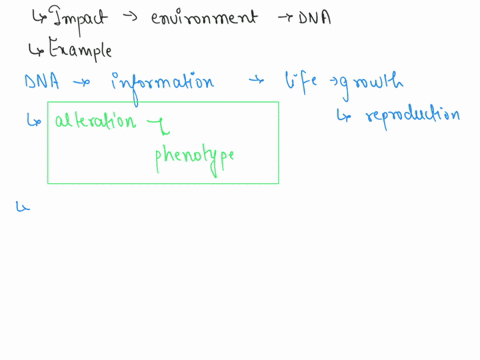 ↳ Impact → environment → DNA
↳ Example
DNA → information → life → growth
↳ alteration ↳ reproduction
phenotype
↳